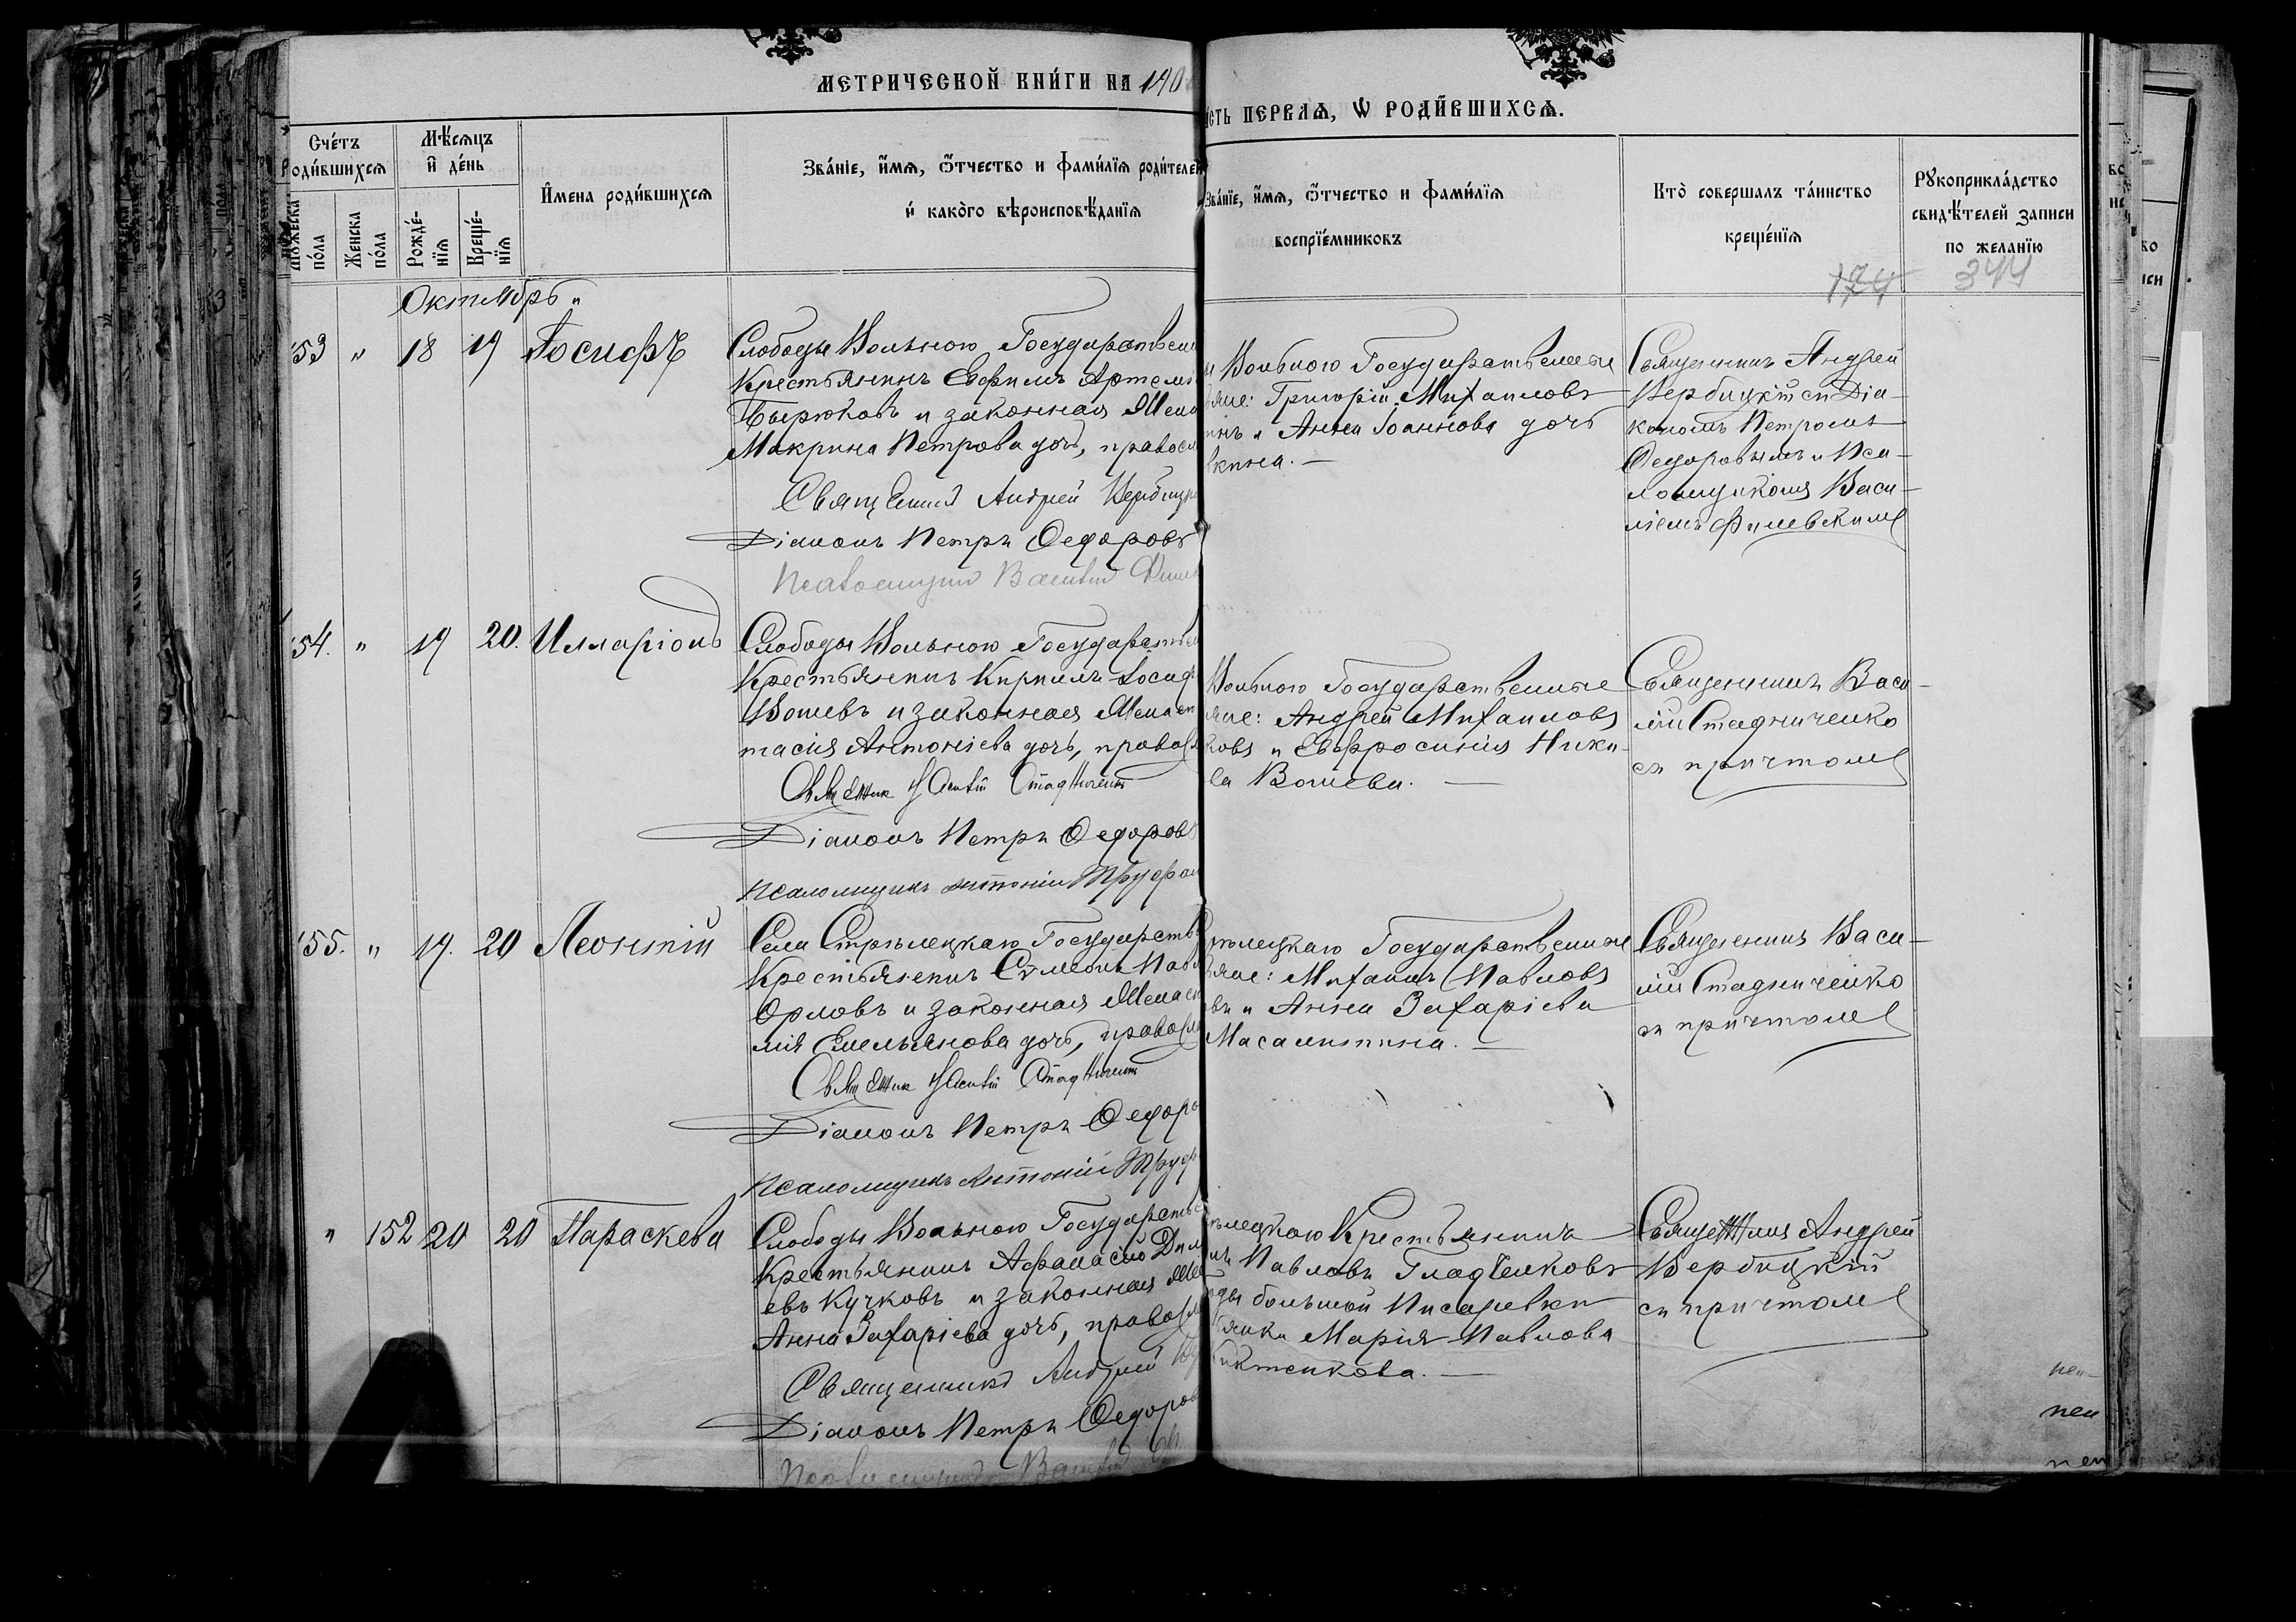 МЕТРИЧЕСКОЙ КНИ́ГИ НА 190
СТЬ ПЕРВАѦ, Ѡ РОДИ́ВШИХСѦ.
Сче́тъ Роди́вшихсѧ
Мѣ́сѧцъ и҆ де́нь
И҆мена роди́вшихсѧ
Зва́нїе, и҆́мѧ, ѻ҆́тчество и фами́лїѧ роди́телей
и҆ како́го вѣроисповѣ́данїѧ
Зва́нїе, и҆́мѧ, ѻ҆́тчество и фами́лїѧ
воспрїе́мниковъ
Кто̀ совершалъ та́инство
креще́нїѧ
Рꙋкоприкла́дство
свидѣ́телей записи
по желанїю
Мꙋжеска по́ла
Женска по́ла
Рожде́нїѧ
Креще́нїѧ
174 344
Октябрь
153 " 18 19 Іосифъ
Слободы Вольною Государствен
Крестьянинъ Евфимъ Артемі
Бирюковъ и законная Жена
Макрина Петрова дочь, правосл
Священникъ Андрей Вербицк
Діаконъ Петръ Ѳедоровъ
Псаломщикъ Василій Филев
Вольною Государственные
яне: Григорій Михаиловъ
инъ и Анна Іоаннова дочь
вкина. —
Священникъ Андрей
Вербицкій съ Діа-
кономъ Петромъ
Ѳедоровымъ и Пса-
ломщикомъ Васи-
ліемъ Филевскимъ
154. " 19 20. Илларіонъ
Слободы Вольною Государствен
Крестьянинъ Кириллъ Іосиф
Вошевъ и законная Жена Ана
тасия Антоніева дочь, правосл
Священник Василій Стадниченко
Діаконъ Петръ Ѳедоровъ
Псаломщикъ Антоній Труфан
Вольною Государственные
яне: Андрей Михаиловъ
ковъ и Евфросинія Ники-
ва Вошева. —
Священникъ Васи-
лій Стадниченко
съ причтомъ
155. " 19. 20 Леонтій
Села Стрѣлецкаго Государств
Крестьянинъ Сѵмеонъ Павл
Орловъ и законная Жена
мія Емельянова дочь, правосл
Священник Василій Стадниченк
Діаконъ Петръ Ѳедоро
Псаломщикъ Антоній Труф
ѣлецкаго Государственные
яне: Михаилъ Павловъ
въ и Анна Захаріева
Масалыткина. —
Священникъ Васи-
лій Стадниченко
съ причтомъ
" 152 20 20 Параскева
Слободы Вольною Государствен
Крестьянинъ Афанасий Дим
евъ Кучковъ и законная Жен
Анна Захаріева дочь, правосл
Священникъ Андрей
Діаконъ Петръ Ѳедоров
Псаломщикъ Василій
ѣлецкаго Крестьянинъ
Павловъ Гладченковъ
оды большой Писаревки
янка Марія Павлова
Никтенкова. —
Священникъ Андрей
Вербицкій
съ причтомъ